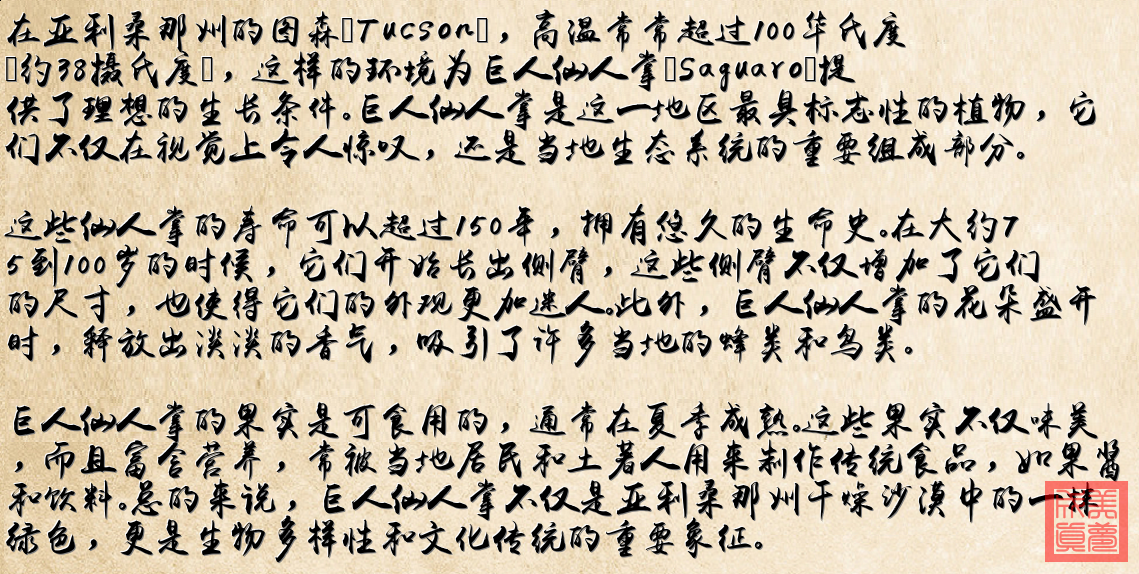 在亚利桑那州的图森▯Tucson▯，高温常常超过100华氏度
▯约38摄氏度▯，这样的环境为巨人仙人掌▯Saguaro▯提
供了理想的生长条件。巨人仙人掌是这一地区最具标志性的植物，它
们不仅在视觉上令人惊叹，还是当地生态系统的重要组成部分。
这些仙人掌的寿命可以超过150年，拥有悠久的生命史。在大约7
5到100岁的时候，它们开始长出侧臂，这些侧臂不仅增加了它们
的尺寸，也使得它们的外观更加迷人。此外，巨人仙人掌的花朵盛开
时，释放出淡淡的香气，吸引了许多当地的蜂类和鸟类。
巨人仙人掌的果实是可食用的，通常在夏季成熟。这些果实不仅味美
，而且富含营养，常被当地居民和土著人用来制作传统食品，如果酱
和饮料。总的来说，巨人仙人掌不仅是亚利桑那州干燥沙漠中的一抹
绿色，更是生物多样性和文化传统的重要象征。